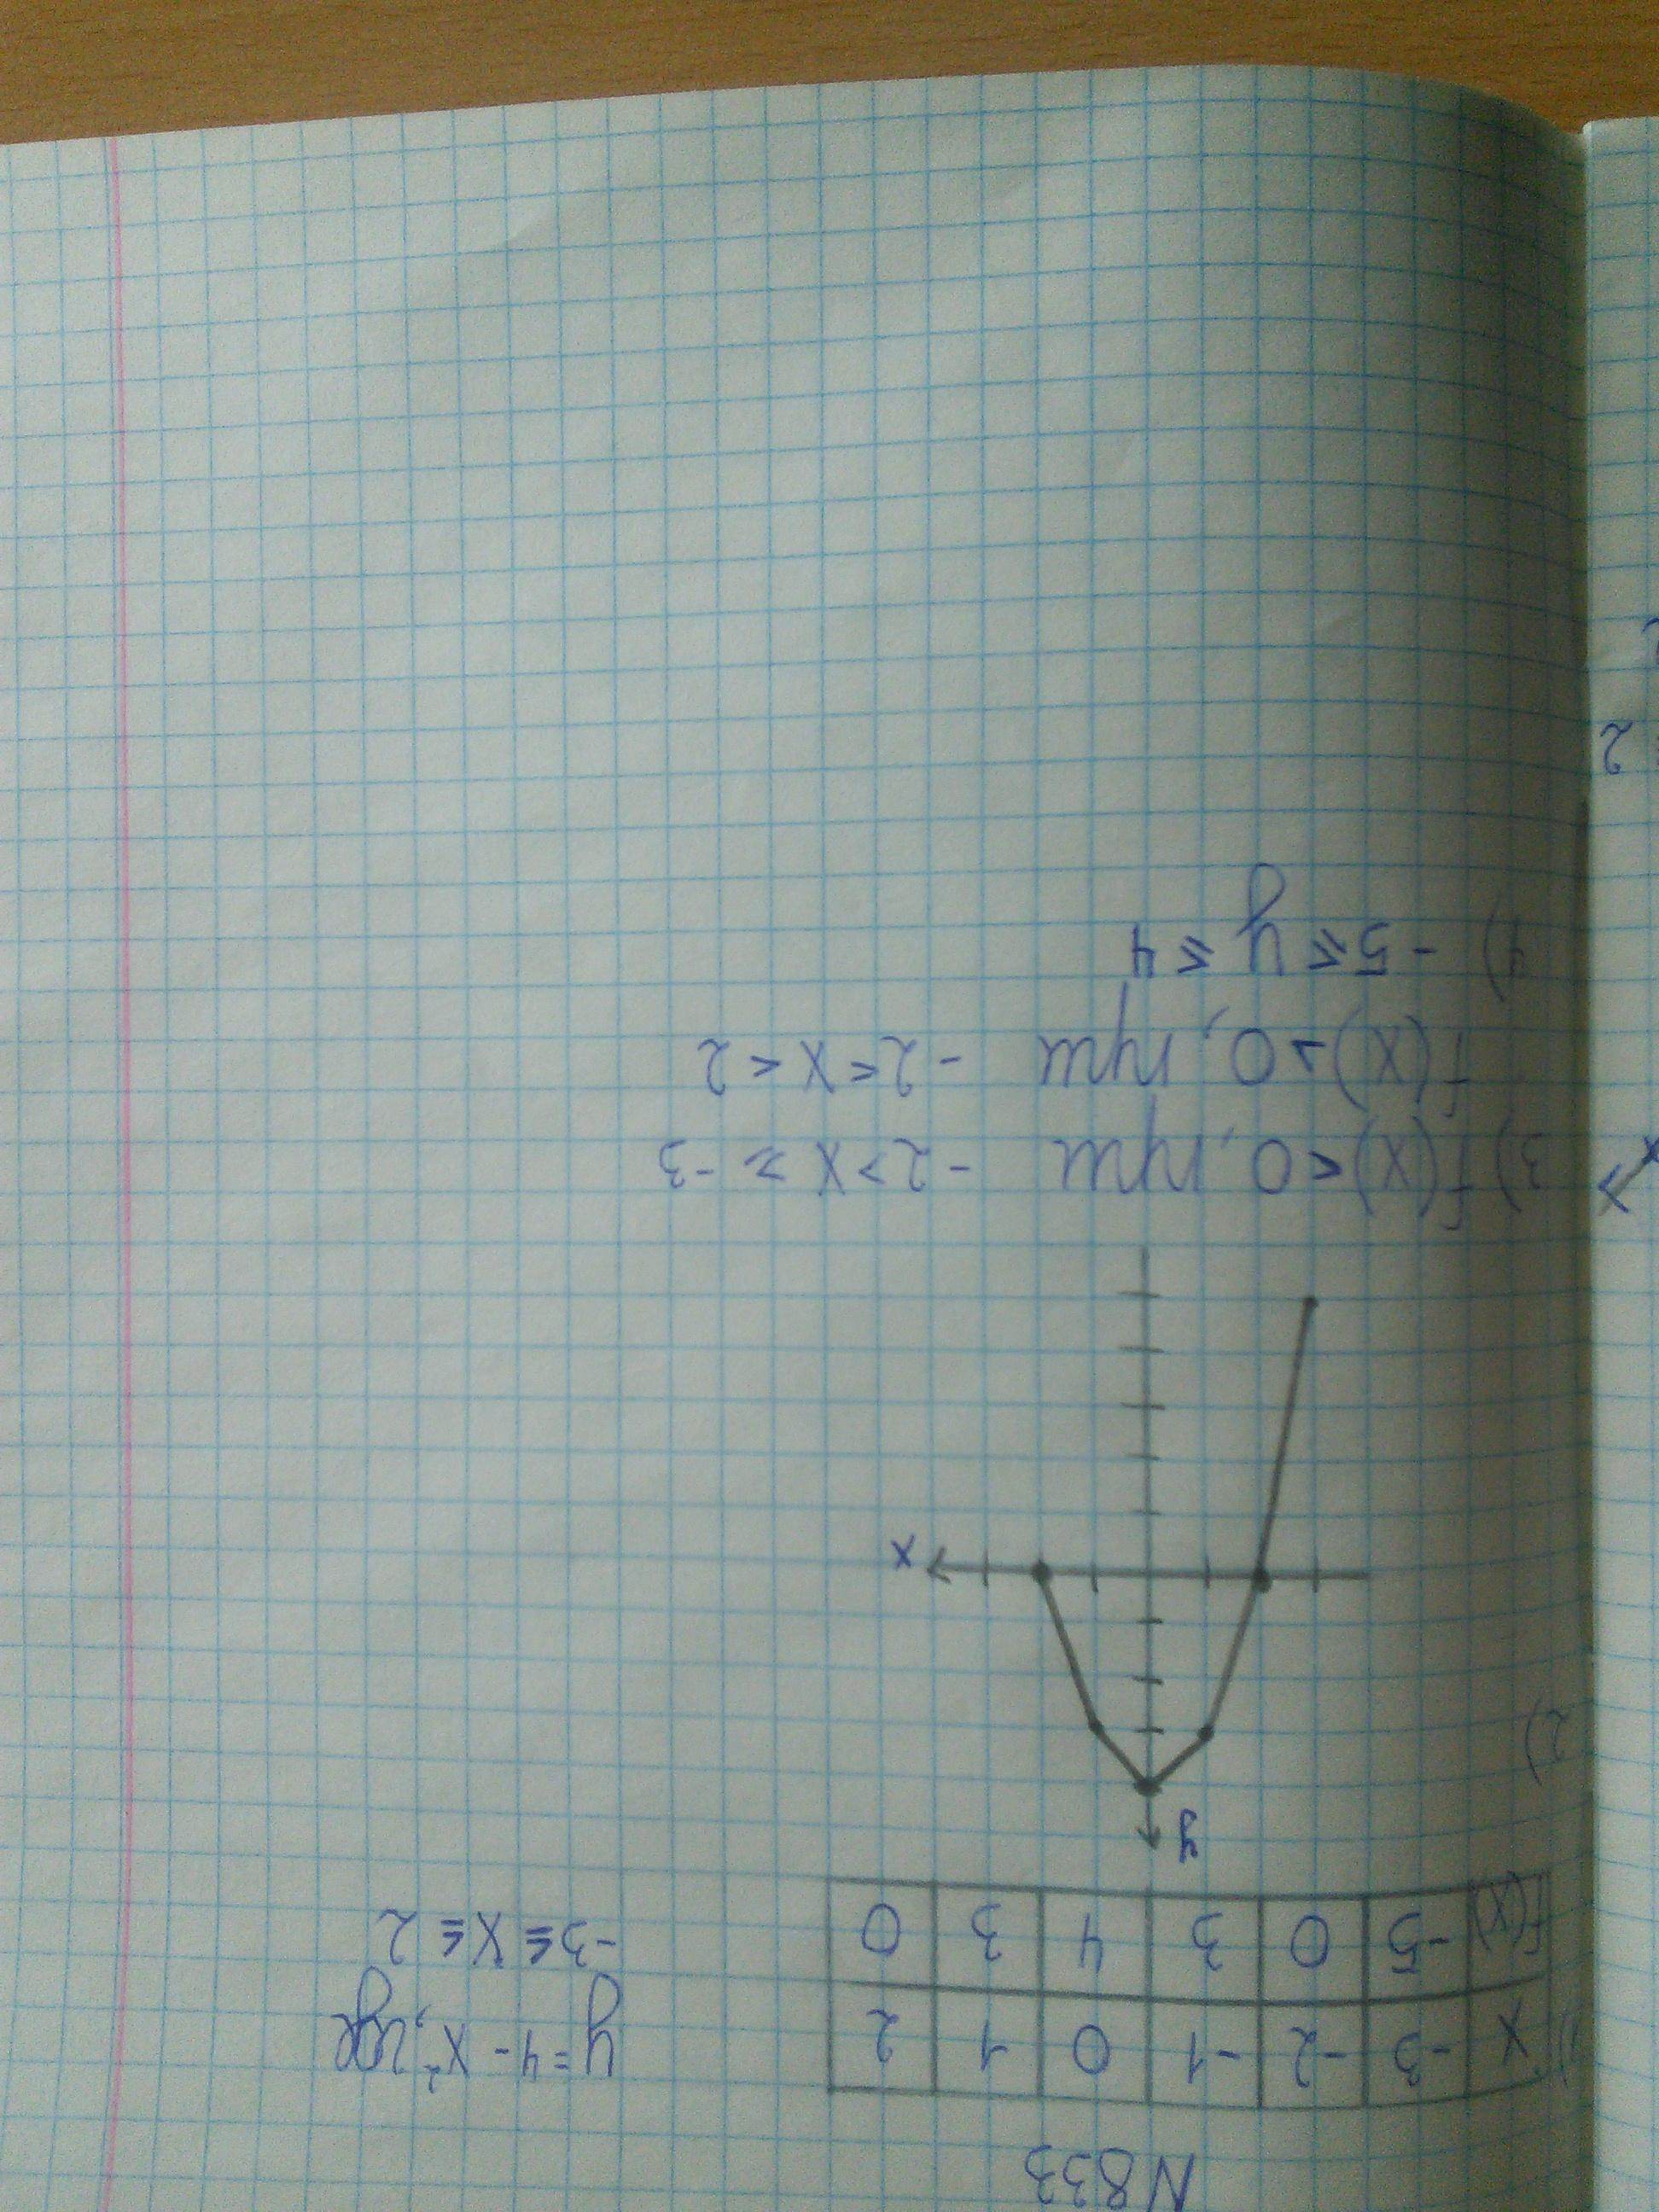 N833
1) X -3 -2 -1 0 1 2
f(x) -5 0 3 4 3 0
y=4-x², где
-3≤x≤2
2)
y
x
3) f(x)<0, при -2>x≥-3
f(x)>0, при -2<x<2
4) -5≤y≤4
x
2